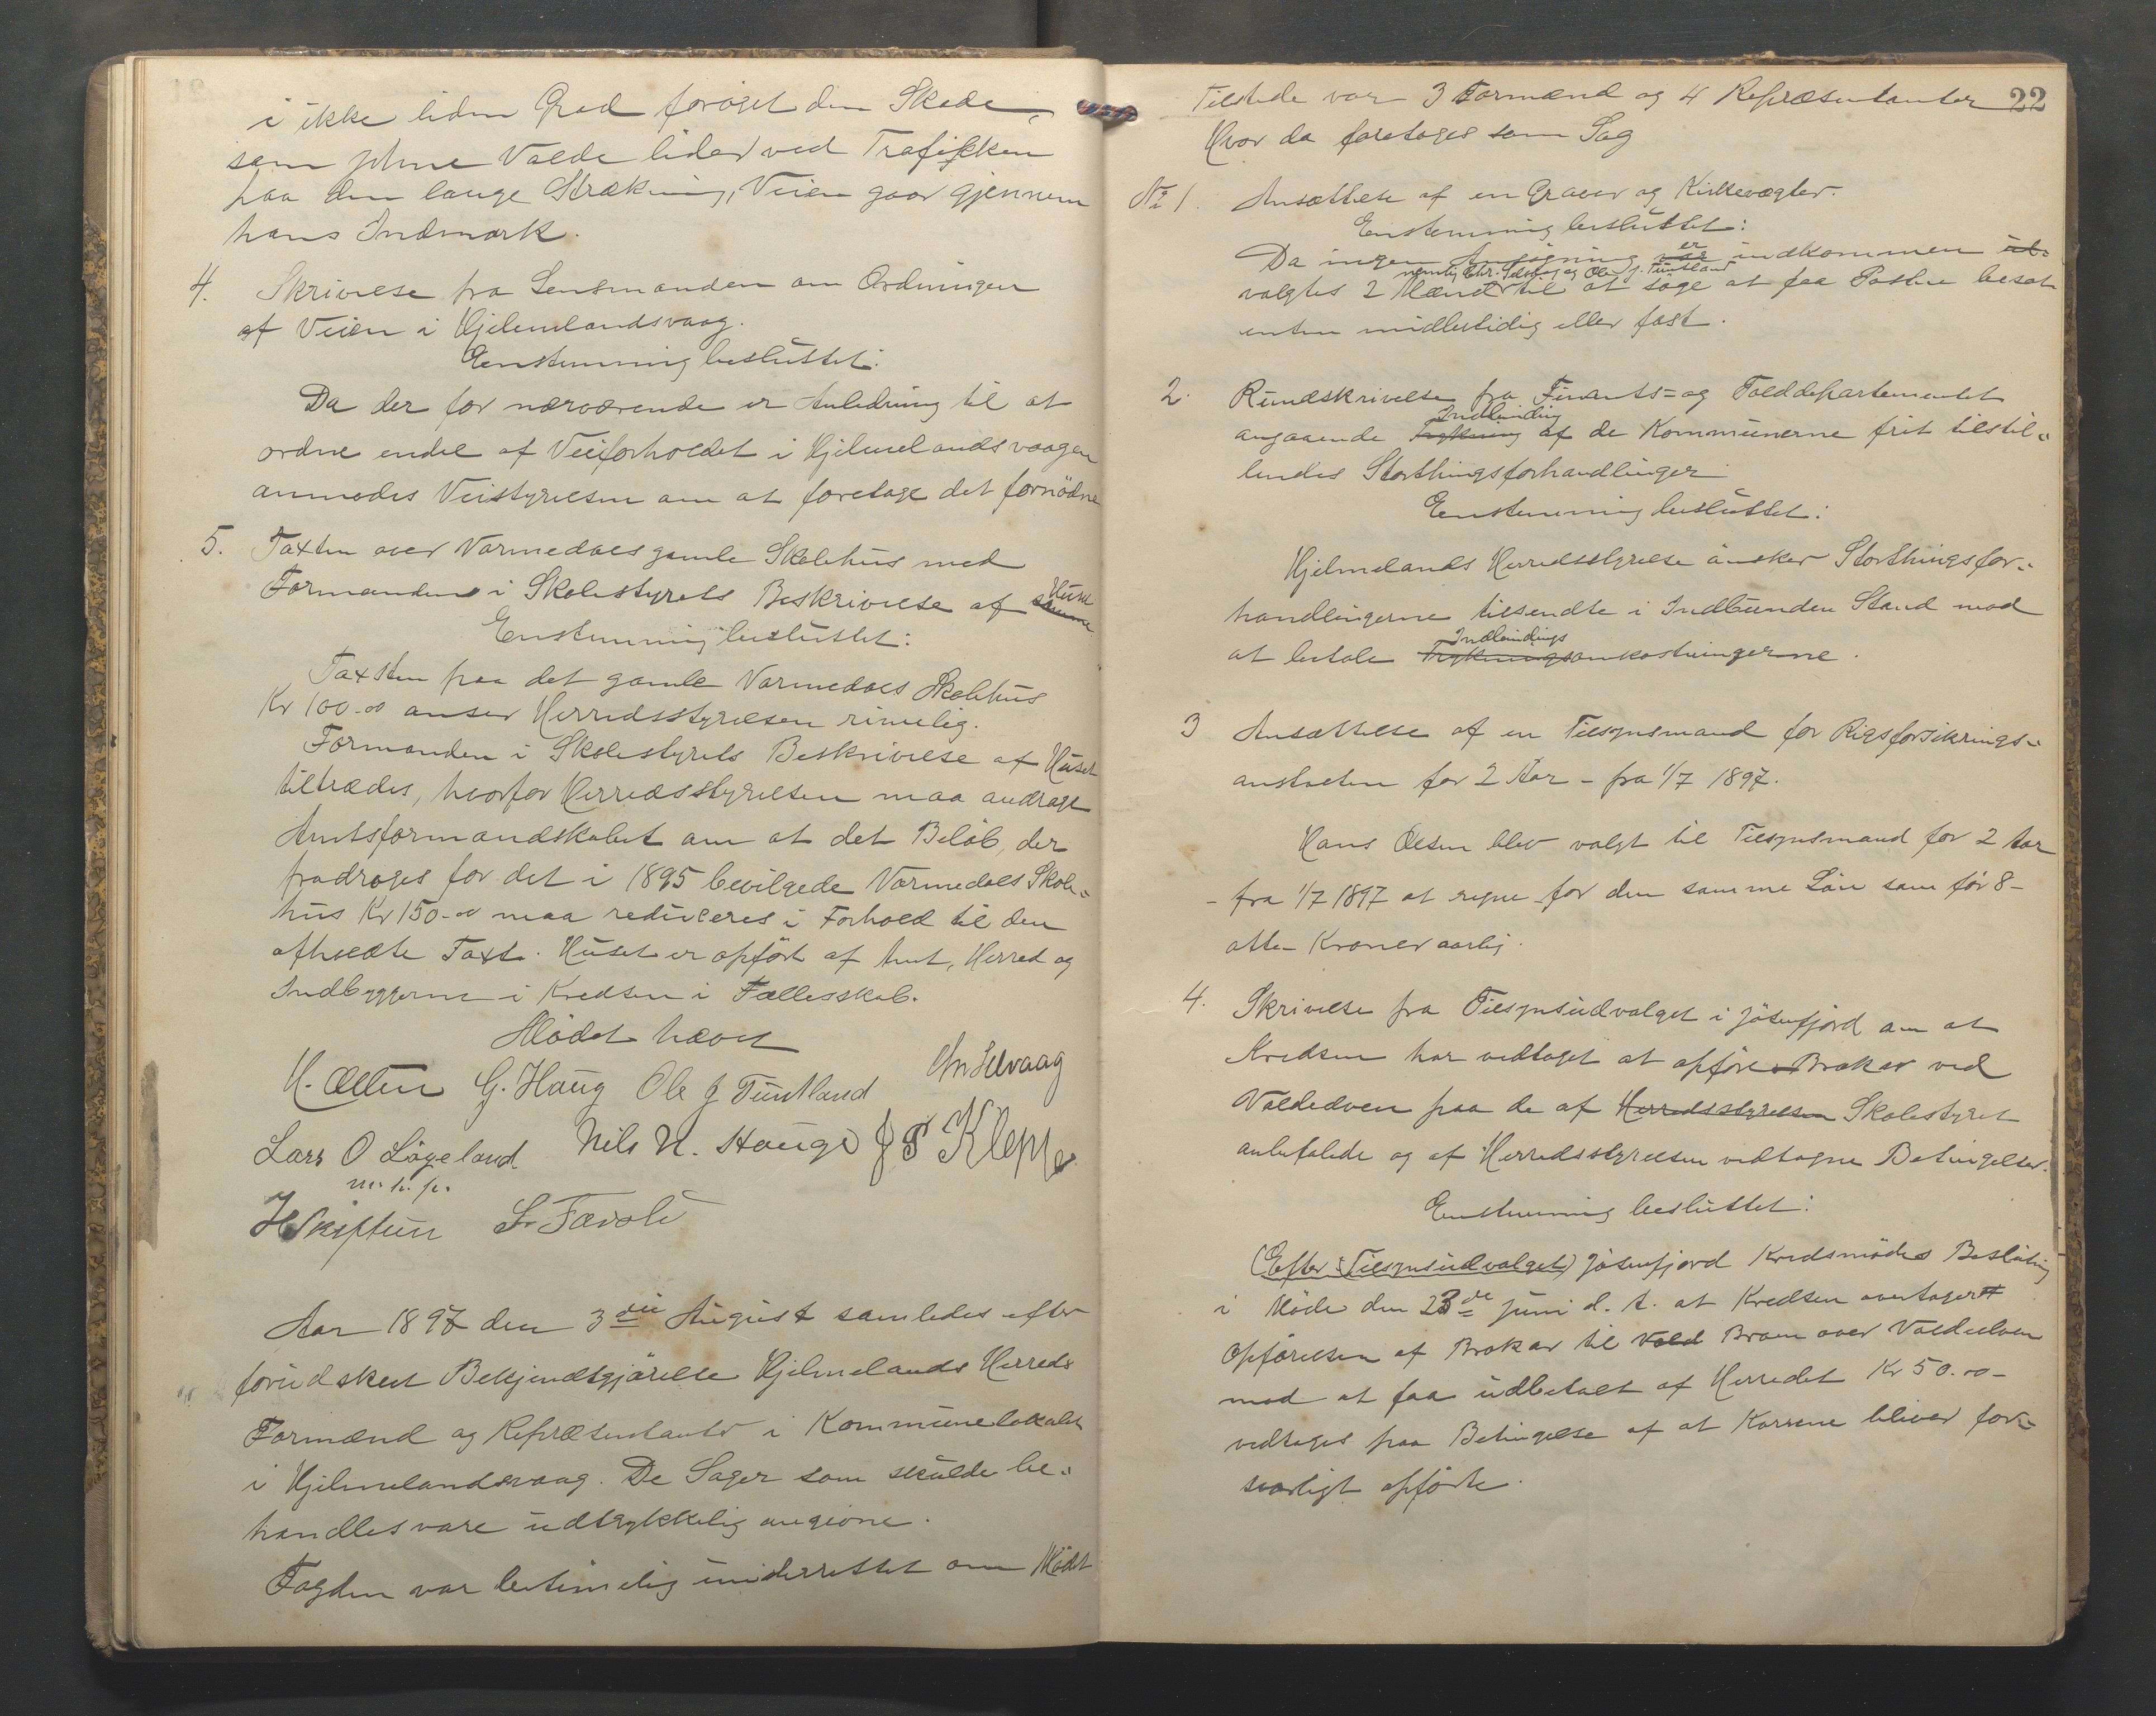 i ikke liden Grad forøget den Skade,
som  Valde lider ved Trafikken
paa den lange Strækning, Veien gaar gjennem
hans Indmark.
4. Skrivelse fra Lensmanden om Ordningen
af Veien i Hjelmelandsvaag.
Enstemmig besluttet:
Da der for nærværende er Anledning til at
ordne endel af Veiforholdet i Hjelmelandsvaagen
anmodes Veistyrelsen om at foretage det fornødne
5. Taxten over Vormedals gamle Skolehus med
Formanden i Skolestyrets Beskrivelse af samme Huse
Enstemmig besluttet:
Taxsten paa det gamle Vormedals Skolehus
Kr 100.00 anser Herredsstyrelsen rimelig.
Formanden i Skolestyrets Beskrivelse af Huset
tiltrædes, hvorfor Herredsstyrelsen maa andrage
Amtsformandskabet om at det Beløb, der
fradroges for det i 1895 bevilgede Vormedals Skole-
hus Kr 150.00 maa reduceres i Forhold til den
afholdte Taxt. Huset er opført af Amt, Herred og
Indbyggerne i Kredsen i Fællesskab.
Mødet hævet
H. Olsen G. Haug Ole J Tuntland Chr Selvaag
Lars O Lögeland Nils N. Hauge J S Kleppe
m. h. p.
H Skiftun S. Tævoli
Aar 1897 den 3die August samledes efter
forudskeet Bekjendtgjørelse Hjelmelands Herreds
Formænd og Repræsentanter i Kommunelokalet
i Hjelmelandsvaag. De Sager som skulde be-
handles vare udtrykkelig angivne.
Fogden var betimelig underrettet om Mødet
22
Tilstede var 3 Formænd og 4 Repræsentanter
Hvor da foretoges som Sag
No 1. Ansættelse af en Graver og Kirkevægter.
Enstemmig besluttet:
Da ingen Ansøgning var er indkommen ud-
valgtes 2 Mænd nemlig Chr. Selvaag og Ole J. Tuntland til at søge at faa Posten besat
enten midlertidig eller fast.
2. Rundskrivelse fra Finants= og Tolddepartementet
angaaende Trykning Indbinding af de Kommunerne frit tilstil-
lendes Storthingsforhandlinger
Enstemmig besluttet:
Hjelmelands Herredsstyrelse ønsker Storthingsfor-
handlingerne tilsendte i Indbunden Stand mod
at betale Trykningsomkostningerne Indbindings.
3 Ansættelse af en Tilsynsmand for Rigsforsikrings-
anstalten for 2 Aar - fra 1/7 1897.
Hans Olsen blev valgt til Tilsynsmand for 2 Aar
- fra 1/7 1897 at regne - for den samme Løn som før 8-
otte Kroner aarlig.
4. Skrivelse fra Tilsynsudvalget i Jøsenfjord om at
Kredsen har vedtaget at opføre Brokar ved
Valdeelven paa de af Herredsstyrelsen Skolestyret
anbefalede og af Herredsstyrelsen vedtagne Betingelser.
Enstemmig besluttet:
(Efter Tilsynsudvalget) Jøsenfjord Kredsmødes Beslutning
i Møde den 23de Juni d. A. at Kredsen overtager
Opførelsen af Brokar til Vald Broen over Valdeelven
mod at faa udbetalt af Herredet Kr 50.00-
vedtages paa Betingelse af at Karrene bliver for-
svarligt opførte.